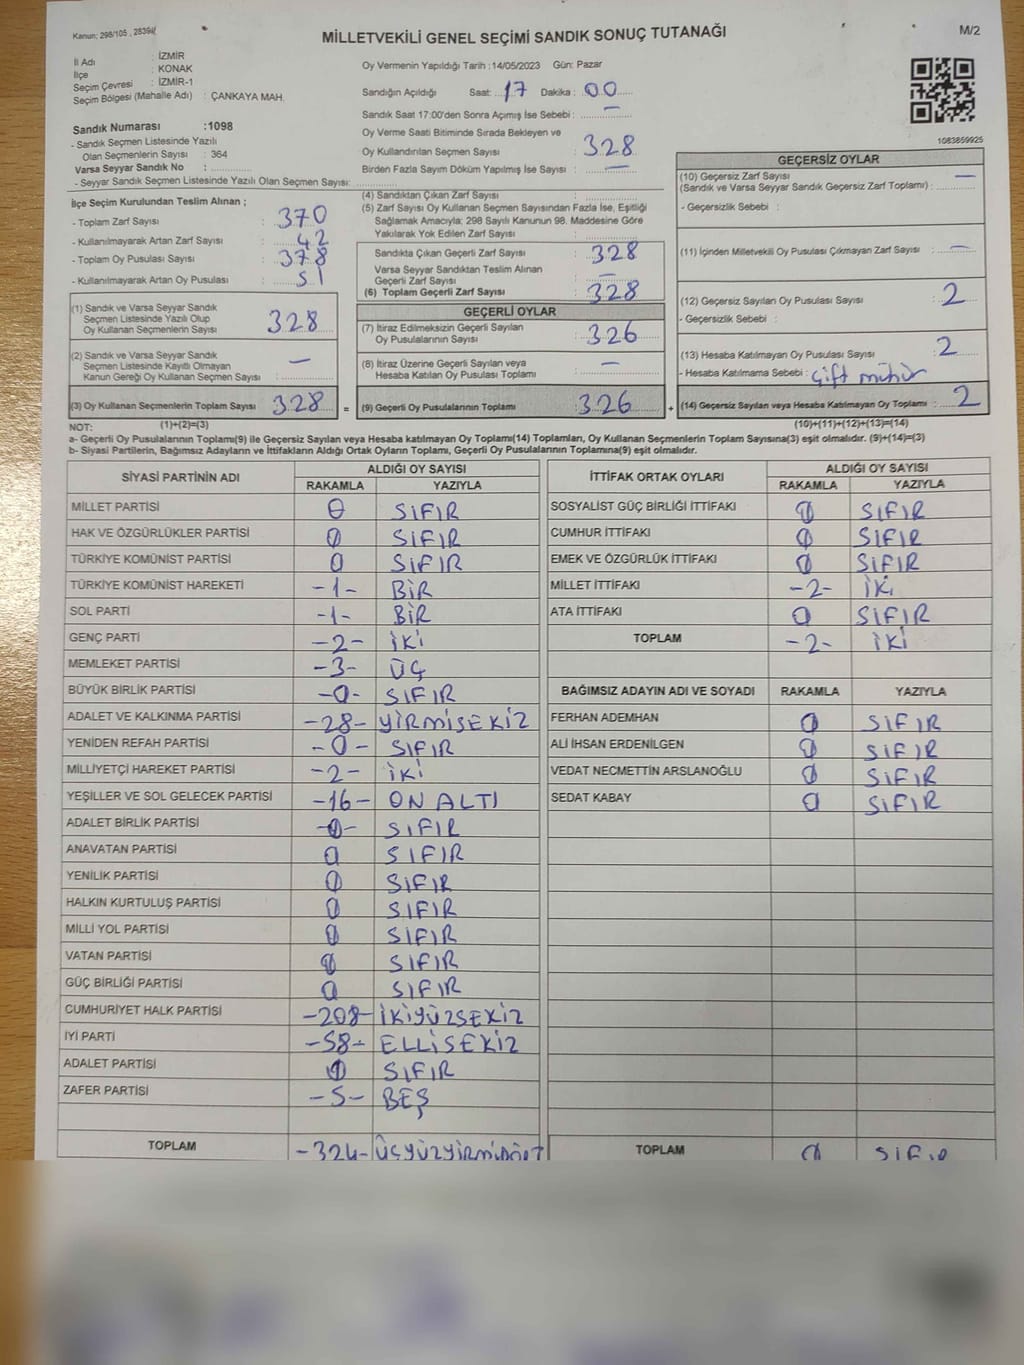 Kanun: 298/105 , 2839/
MİLLETVEKİLİ GENEL SEÇİMİ SANDIK SONUÇ TUTANAĞI
M/2
İl Adı : İZMİR
İlçe : KONAK
Seçim Çevresi : İZMİR-1
Seçim Bölgesi (Mahalle Adı) : ÇANKAYA MAH.
Sandık Numarası :1098
- Sandık Seçmen Listesinde Yazılı
Olan Seçmenlerin Sayısı : 364
Varsa Seyyar Sandık No :
- Seyyar Sandık Seçmen Listesinde Yazılı Olan Seçmen Sayısı:
Oy Vermenin Yapıldığı Tarih :14/05/2023 Gün: Pazar
Sandığın Açıldığı Saat: 17 Dakika : 00
Sandık Saat 17:00'den Sonra Açımış İse Sebebi : —
Oy Verme Saati Bitiminde Sırada Bekleyen ve
Oy Kullandırılan Seçmen Sayısı : 328
Birden Fazla Sayım Döküm Yapılmış İse Sayısı : —
1083859925
İlçe Seçim Kurulundan Teslim Alınan ;
- Toplam Zarf Sayısı : 370
- Kullanılmayarak Artan Zarf Sayısı : 42
- Toplam Oy Pusulası Sayısı : 378
- Kullanılmayarak Artan Oy Pusulası : 51
(1) Sandık ve Varsa Seyyar Sandık
Seçmen Listesinde Yazılı Olup
Oy Kullanan Seçmenlerin Sayısı 328
(2) Sandık ve Varsa Seyyar Sandık
Seçmen Listesinde Kayıtlı Olmayan
Kanun Gereği Oy Kullanan Seçmen Sayısı : —
(3) Oy Kullanan Seçmenlerin Toplam Sayısı 328 =
(4) Sandıktan Çıkan Zarf Sayısı :
(5) Zarf Sayısı Oy Kullanan Seçmen Sayısından Fazla İse, Eşitliği
Sağlamak Amacıyla; 298 Sayılı Kanunun 98. Maddesine Göre
Yakılarak Yok Edilen Zarf Sayısı :
Sandıkta Çıkan Geçerli Zarf Sayısı : 328
Varsa Seyyar Sandıktan Teslim Alınan
Geçerli Zarf Sayısı : —
(6) Toplam Geçerli Zarf Sayısı : 328
GEÇERLİ OYLAR
(7) İtiraz Edilmeksizin Geçerli Sayılan
Oy Pusulalarının Sayısı : 326
(8) İtiraz Üzerine Geçerli Sayılan veya
Hesaba Katılan Oy Pusulası Toplamı : —
(9) Geçerli Oy Pusulalarının Toplamı 326 +
GEÇERSİZ OYLAR
(10) Geçersiz Zarf Sayısı
(Sandık ve Varsa Seyyar Sandık Geçersiz Zarf Toplamı) : —
- Geçersizlik Sebebi :
(11) İçinden Milletvekili Oy Pusulası Çıkmayan Zarf Sayısı : —
(12) Geçersiz Sayılan Oy Pusulası Sayısı : 2
- Geçersizlik Sebebi :
(13) Hesaba Katılmayan Oy Pusulası Sayısı : 2
- Hesaba Katılmama Sebebi : çift mühür
(14) Geçersiz Sayılan veya Hesaba Katılmayan Oy Toplamı : 2
NOT: (1)+(2)=(3) (10)+(11)+(12)+(13)=(14)
a- Geçerli Oy Pusulalarının Toplamı(9) ile Geçersiz Sayılan veya Hesaba katılmayan Oy Toplamı(14) Toplamları, Oy Kullanan Seçmenlerin Toplam Sayısına(3) eşit olmalıdır. (9)+(14)=(3)
b- Siyasi Partilerin, Bağımsız Adayların ve İttifakların Aldığı Ortak Oyların Toplamı, Geçerli Oy Pusulalarının Toplamına(9) eşit olmalıdır.
SİYASİ PARTİNİN ADI ALDIĞI OY SAYISI
RAKAMLA YAZIYLA
MİLLET PARTİSİ 0 SIFIR
HAK VE ÖZGÜRLÜKLER PARTİSİ 0 SIFIR
TÜRKİYE KOMÜNİST PARTİSİ 0 SIFIR
TÜRKİYE KOMÜNİST HAREKETİ -1- BİR
SOL PARTİ -1- BİR
GENÇ PARTİ -2- İKİ
MEMLEKET PARTİSİ -3- ÜÇ
BÜYÜK BİRLİK PARTİSİ -0- SIFIR
ADALET VE KALKINMA PARTİSİ -28- YİRMİSEKİZ
YENİDEN REFAH PARTİSİ -0- SIFIR
MİLLİYETÇİ HAREKET PARTİSİ -2- İKİ
YEŞİLLER VE SOL GELECEK PARTİSİ -16- ON ALTI
ADALET BİRLİK PARTİSİ -0- SIFIR
ANAVATAN PARTİSİ 0 SIFIR
YENİLİK PARTİSİ 0 SIFIR
HALKIN KURTULUŞ PARTİSİ 0 SIFIR
MİLLİ YOL PARTİSİ 0 SIFIR
VATAN PARTİSİ 0 SIFIR
GÜÇ BİRLİĞİ PARTİSİ 0 SIFIR
CUMHURİYET HALK PARTİSİ -208- İKİYÜZSEKİZ
İYİ PARTİ -58- ELLİSEKİZ
ADALET PARTİSİ 0 SIFIR
ZAFER PARTİSİ -5- BEŞ
TOPLAM -324- ÜÇYÜZYİRMİDÖRT
İTTİFAK ORTAK OYLARI ALDIĞI OY SAYISI
RAKAMLA YAZIYLA
SOSYALİST GÜÇ BİRLİĞİ İTTİFAKI 0 SIFIR
CUMHUR İTTİFAKI 0 SIFIR
EMEK VE ÖZGÜRLÜK İTTİFAKI 0 SIFIR
MİLLET İTTİFAKI -2- İKİ
ATA İTTİFAKI 0 SIFIR
TOPLAM -2- İKİ
BAĞIMSIZ ADAYIN ADI VE SOYADI RAKAMLA YAZIYLA
FERHAN ADEMHAN 0 SIFIR
ALİ İHSAN ERDENİLGEN 0 SIFIR
VEDAT NECMETTİN ARSLANOĞLU 0 SIFIR
SEDAT KABAY 0 SIFIR
TOPLAM 0 SIFIR